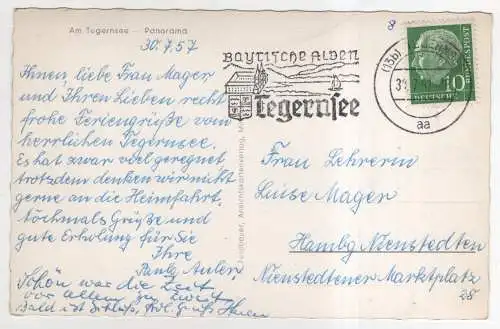 Am Tegernsee — Panorama
30.7.57
Ihnen, liebe Frau Mager
und Ihren Lieben recht
frohe Feriengrüße vom
herrlichen Tegernsee.
Es hat zwar viel geregnet
trotzdem denken wir nicht
gerne an die Heimfahrt.
Nochmals Grüße und
gute Erholung für Sie
Ihre
Schön war die Zeit
vor allem zu zweit
Bald ist Schluß,
8
Bayrische Alpen
Tegernsee
(13b)
aa
10
DEUTSCHE BUNDESPOST
Frau Lehrerin
Luise Mager
Hambg Nienstedten
Nienstedtener Marktplatz
28
Ansichtskartenverlag,